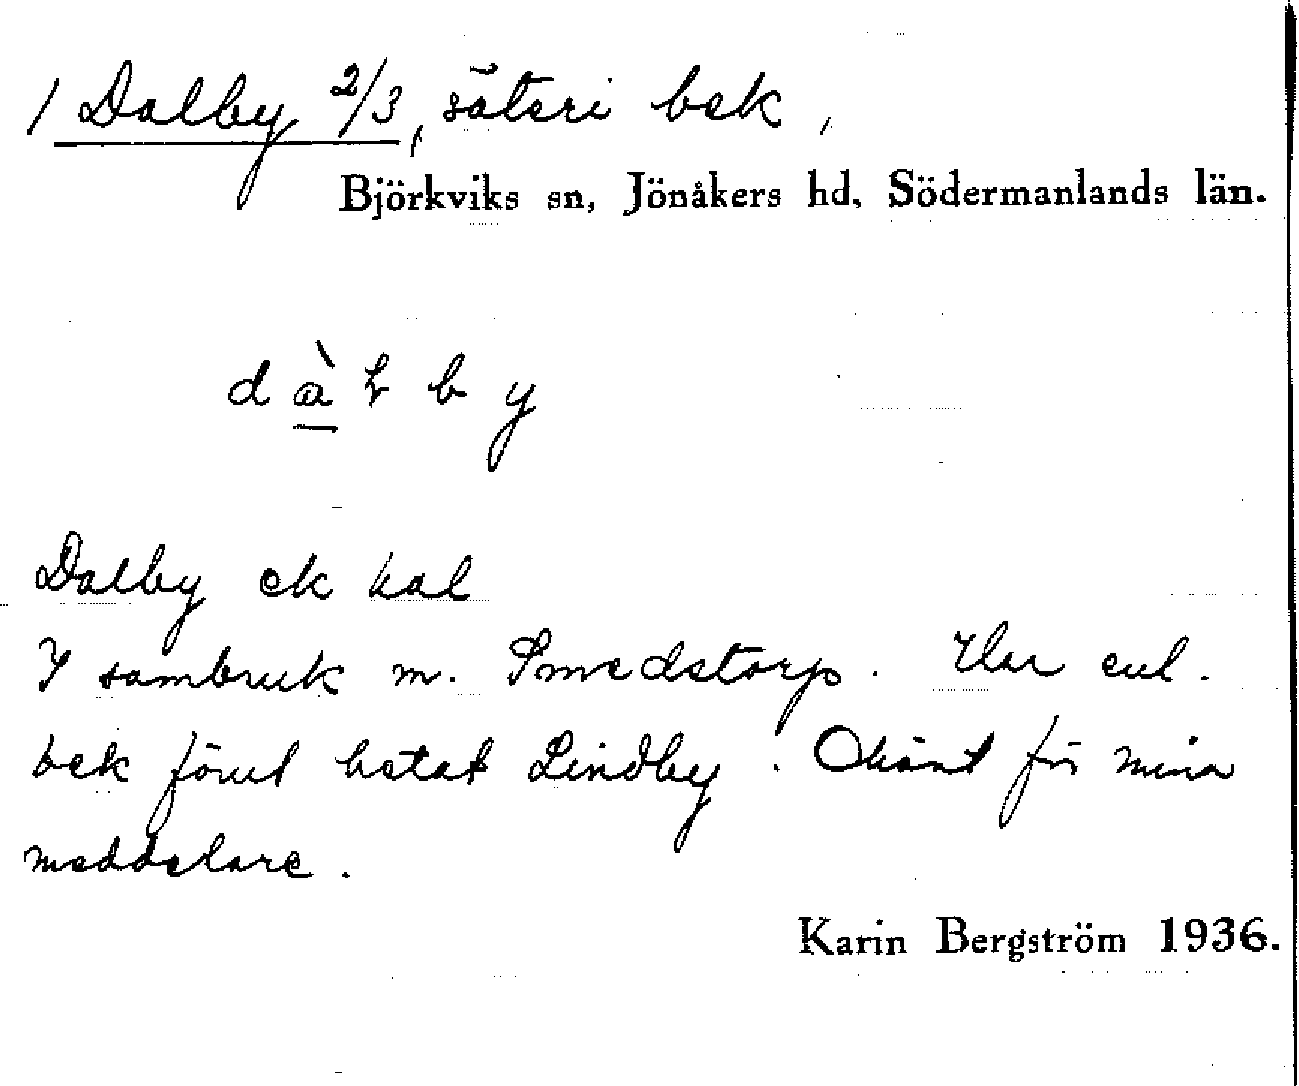 1 Dalby 2/3, säteri bek,
Björkviks sn, Jönåkers hd, Södermanlands län.
dàɫby
Dalby ek kal
I sambruk m. Smedstorp. Har enl.
bek förut hetat Lindby. Okänt för mina
meddelare.
Karin Bergström 1936.